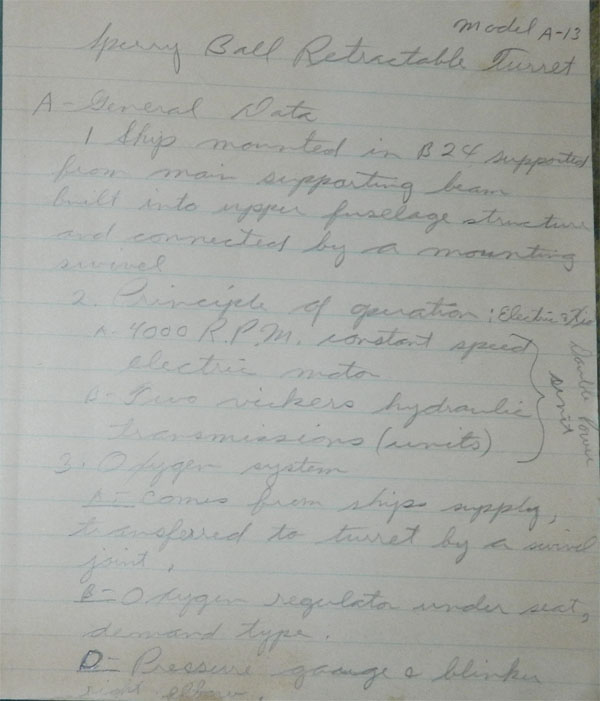 Model A-13
Sperry Ball Retractable Turret
A - General Data
1 Ship mounted in B24 supported
from main supporting beam
built into upper fuselage structure
and connected by a mounting
swivel
2. Principle of operation: Electric &
A- 4000 R.P.M. constant speed
electric motor
B- Two vickers hydraulic
transmissions (units)
Double Power
unit
3. Oxygen system
A- Comes from ships supply,
transferred to turret by a swivel
joint.
B- Oxygen regulator under seat,
demand type.
D- Pressure gauge & blinker
right elbow.